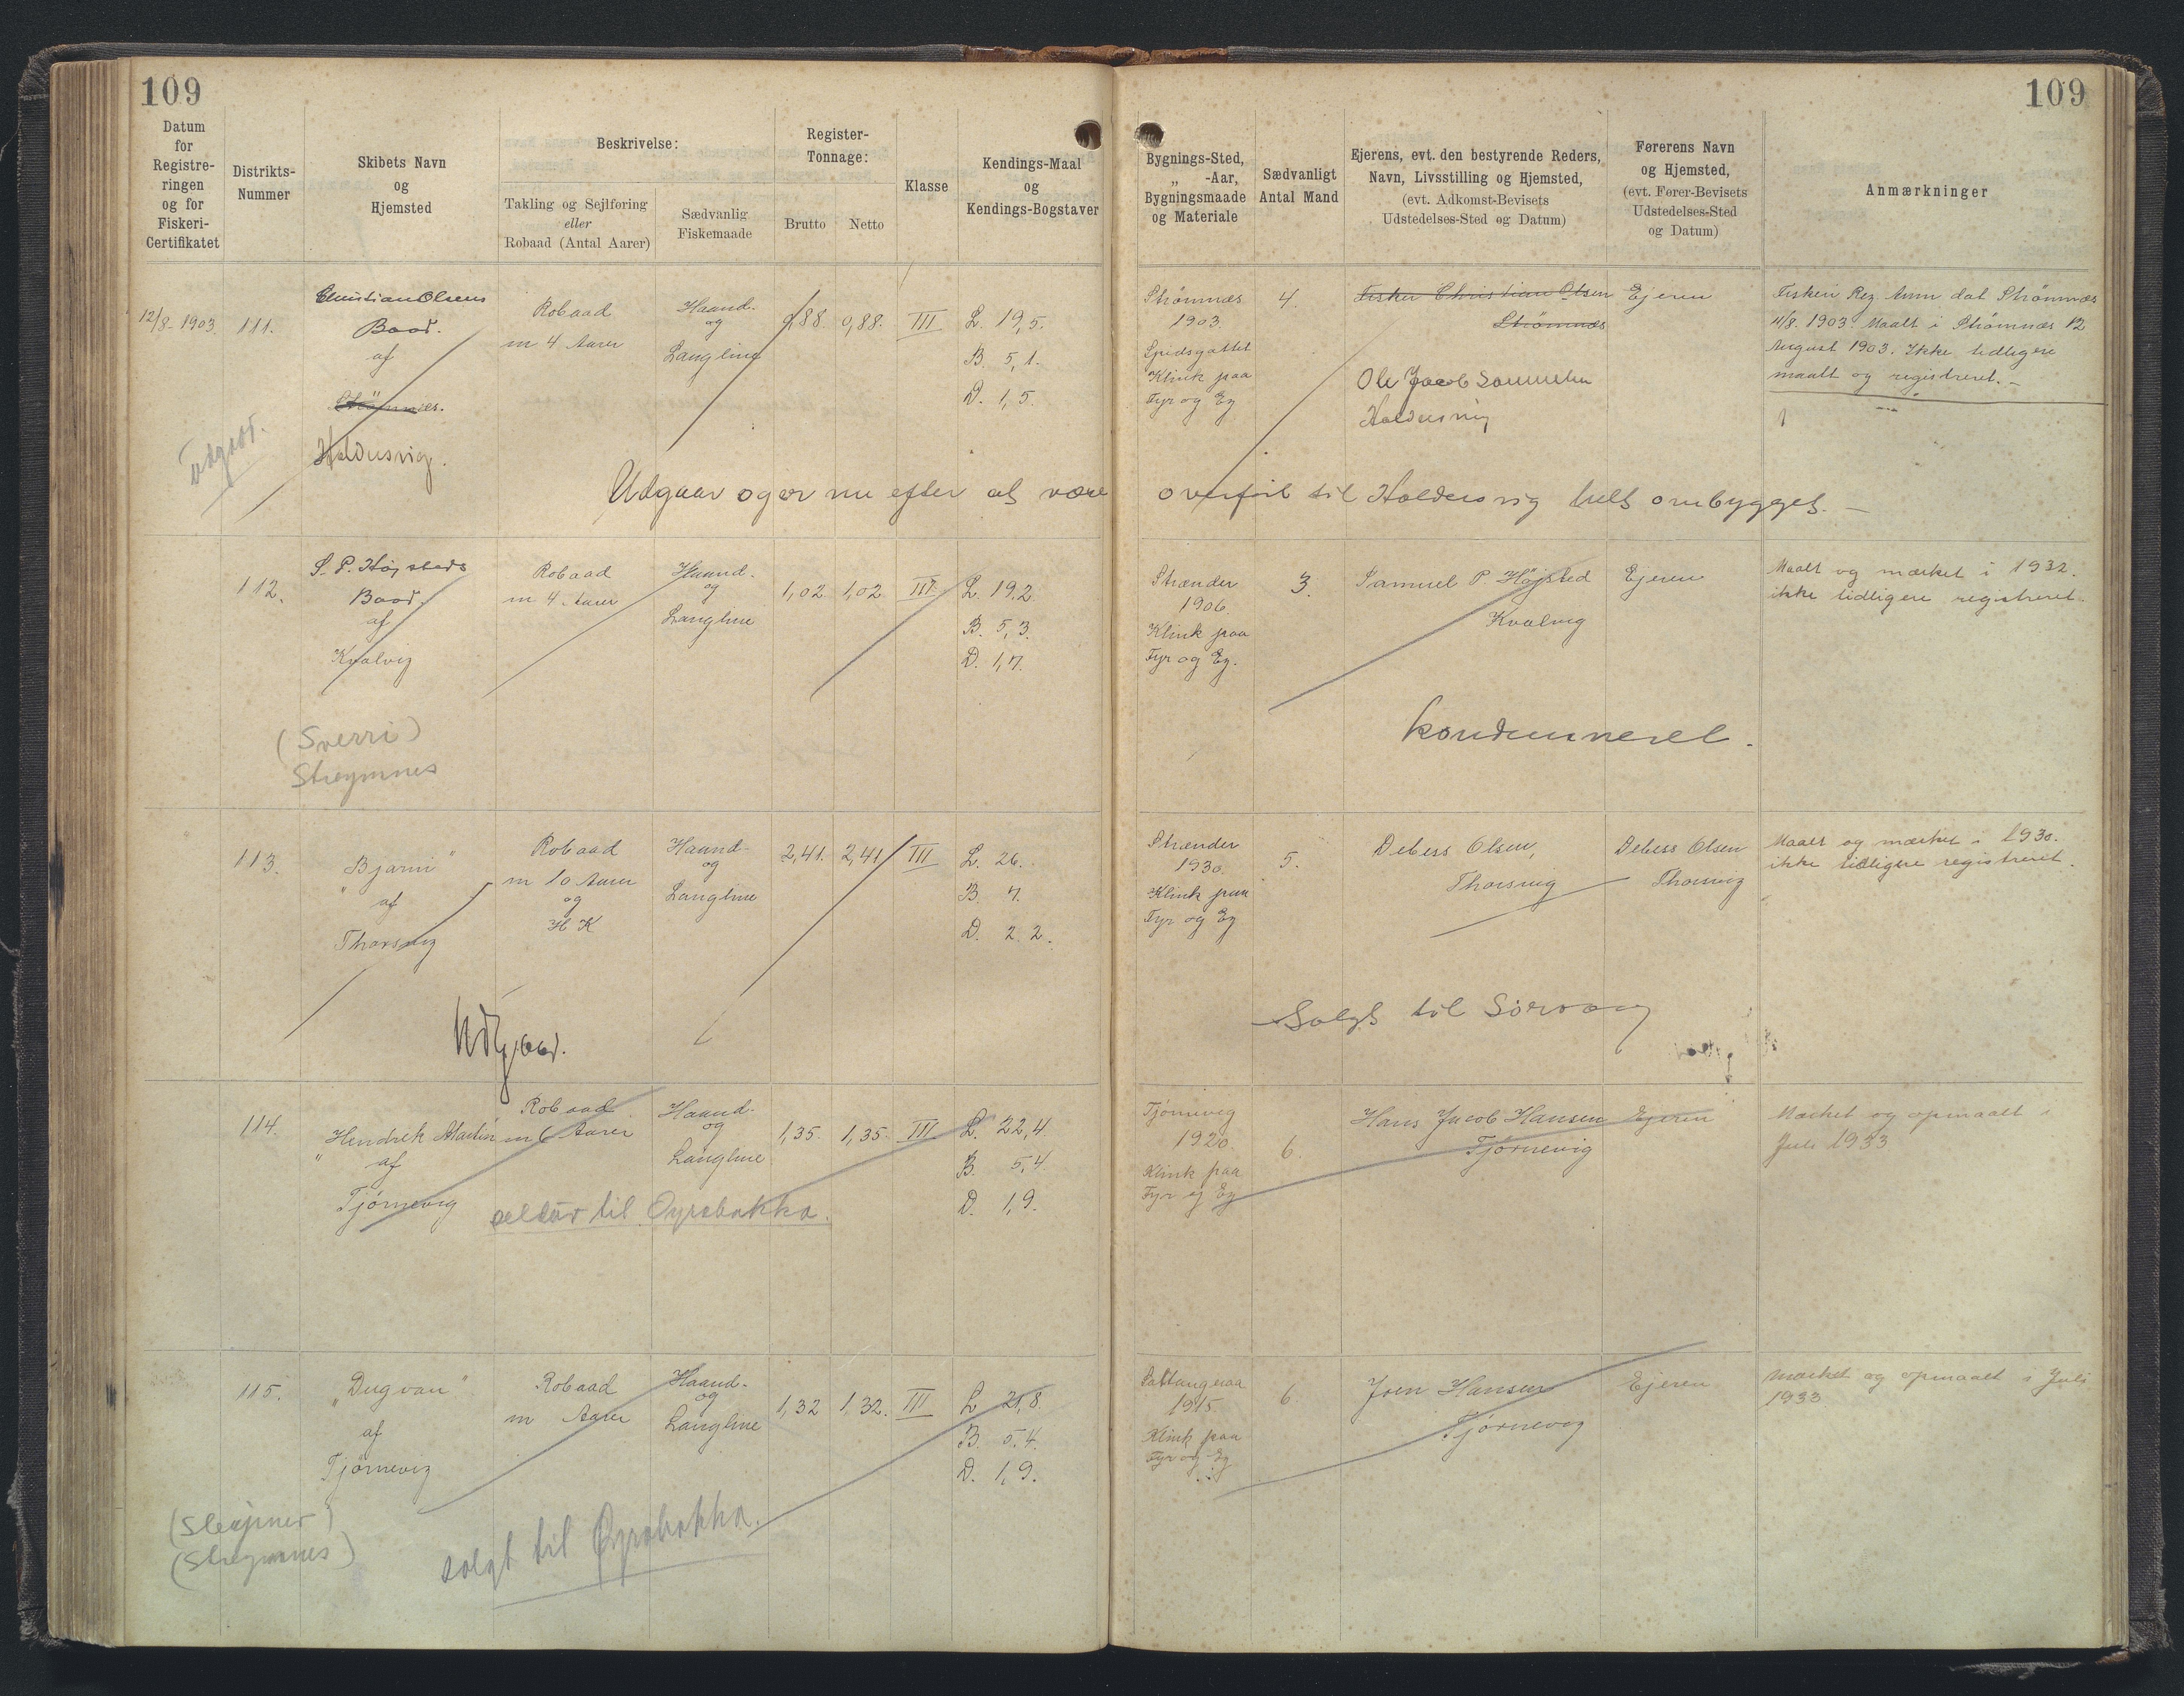 109
109
Datum
for
Registre-
ringen
og for
Fiskeri-
Certifikatet
Distrikts-
Nummer
Skibets Navn
og
Hjemsted
Beskrivelse:
Takling og Sejlføring
eller
Robaad (Antal Aarer)
Sædvanlig
Fiskemaade
Register-
Tonnage:
Brutto
Netto
Klasse
Kendings-Maal
og
Kendings-Bogstaver
Bygnings-Sted,
„ -Aar,
Bygningsmaade
og Materiale
Sædvanligt
Antal Mand
Ejerens, evt. den bestyrende Reders,
Navn, Livsstilling og Hjemsted,
(evt. Adkomst-Bevisets
Udstedelses-Sted og Datum)
Førerens Navn
og Hjemsted,
(evt. Fører-Bevisets
Udstedelses-Sted
og Datum)
Anmærkninger
12/8-1903.
111.
Christian Olsens
Baad.
af
Strömnes.
Haldersvig.
Udgaat.
Robaad
m 4 Aarer
Haand-
og
Langline
0,88.
0,88.
III
L. 19,5.
B. 5,1.
D. 1,5.
Strömnæs
1903.
Spidsgattet
Klink paa
Fyr og Eg
4.
Fisker Christian Olsen
Strömnæs
Ole Jacob Samuelsen
Haldersvig
Ejeren
Fiskeri Reg. Anm dat Strömnæs
11/8. 1903. Maalt i Strömnæs 12
August 1903. Ikke tidligere
maalt og registreret.-
Udgaar og er nu efter at være overført til Haldersvig helt ombygget. -
112.
S. P. Højsteds
Baad.
af
Kvalvig
(Sverri)
Streymnes
Robaad
m 4 Aarer
Haand-
og
Langline
1,02
1,02.
III
L. 19,2.
B. 5,3.
D. 1,7.
Strænder
1906.
Klink paa
Fyr og Eg.
3.
Samuel P. Højsted
Kvalvig
Ejeren
Maalt og mærket i 1932.
ikke tidligere registreret.
kondemneret.
113.
"Bjarni"
af
Thorsvig
Robaad
m 10 Aarer
og
H K
Haand-
og
Langline
2,41.
2,41
III
L. 26.
B. 7.
D. 2.2.
Strænder
1930.
Klink paa
Fyr og Eg
5.
Debess Olsen,
Thorsvig
Debess Olsen
Thorsvig
Maalt og mærket i 1930.
ikke tidligere registreret.
Udgaaet.
Solgt til Sörvaag
114.
"Hendrik Martin"
af
Tjørnevig
Robaad
m 6 Aarer
Haand-
og
Langline
1,35.
1,35.
III
L. 22,4
B. 5,4
D. 1,9.
Tjørnevig
1920.
Klink paa
Fyr og Eg
6.
Hans Jacob Hansen
Tjørnevig
Ejeren
Mærket og opmaalt i
Juli 1933
seldur til Oyrabakka.
115.
„Dugvan"
af
Tjørnevig
(Sleipner)
(Streymnes)
Robaad
m Aarer
Haand-
og
Langline
1,32
1,32.
III
L 21,8.
B. 5.4.
D. 1,9.
1915.
Klink paa
Fyr og Eg
6
Joen Hansen
Tjørnevig
Ejeren
Mærket og opmaalt i Juli
1933
solgt til Oyrabakka.